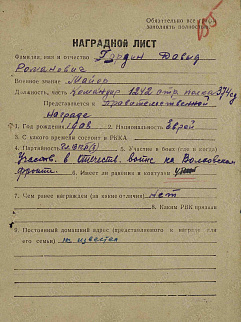 Обязательно все
заполнять полностью
155
НАГРАДНОЙ ЛИСТ
Фамилия, имя и отчество Гурдин Давид
Романович
Военное звание Майор
Должность, часть Командир 1242 стр. полка 374 сд
Представляется к Правительственной
награде
1. Год рождения 2. Национальность Еврей
3. С какого времени состоит в РККА
4. Партийность 5. Участие в боях (где и когда)
Участв. в Отечеств. войне на Волховском
фронте. 6. Имеет ли ранения и контузии
7. Чем ранее награжден (за какие отличия) Нет
8. Каким РВК призван
9. Постоянный домашний адрес (представляемого к награде или
его семьи) не известен